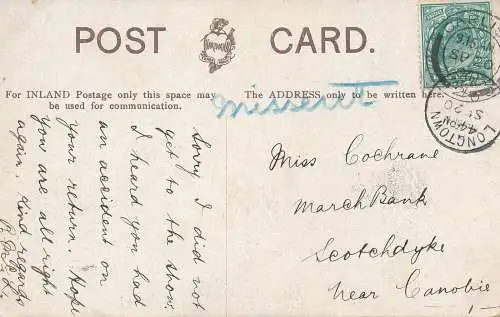 POST CARD.
For INLAND Postage only this space may
be used for communication.
The ADDRESS only to be written here.
Missent
Sorry I did not
get to the show.
I heard you had
an accident on
your return. Hope
you are all right
again. Kind regards
Miss Cochrane
March Bank
Scotchdyke
Near Canobie
CARLISLE
LONGTOWN